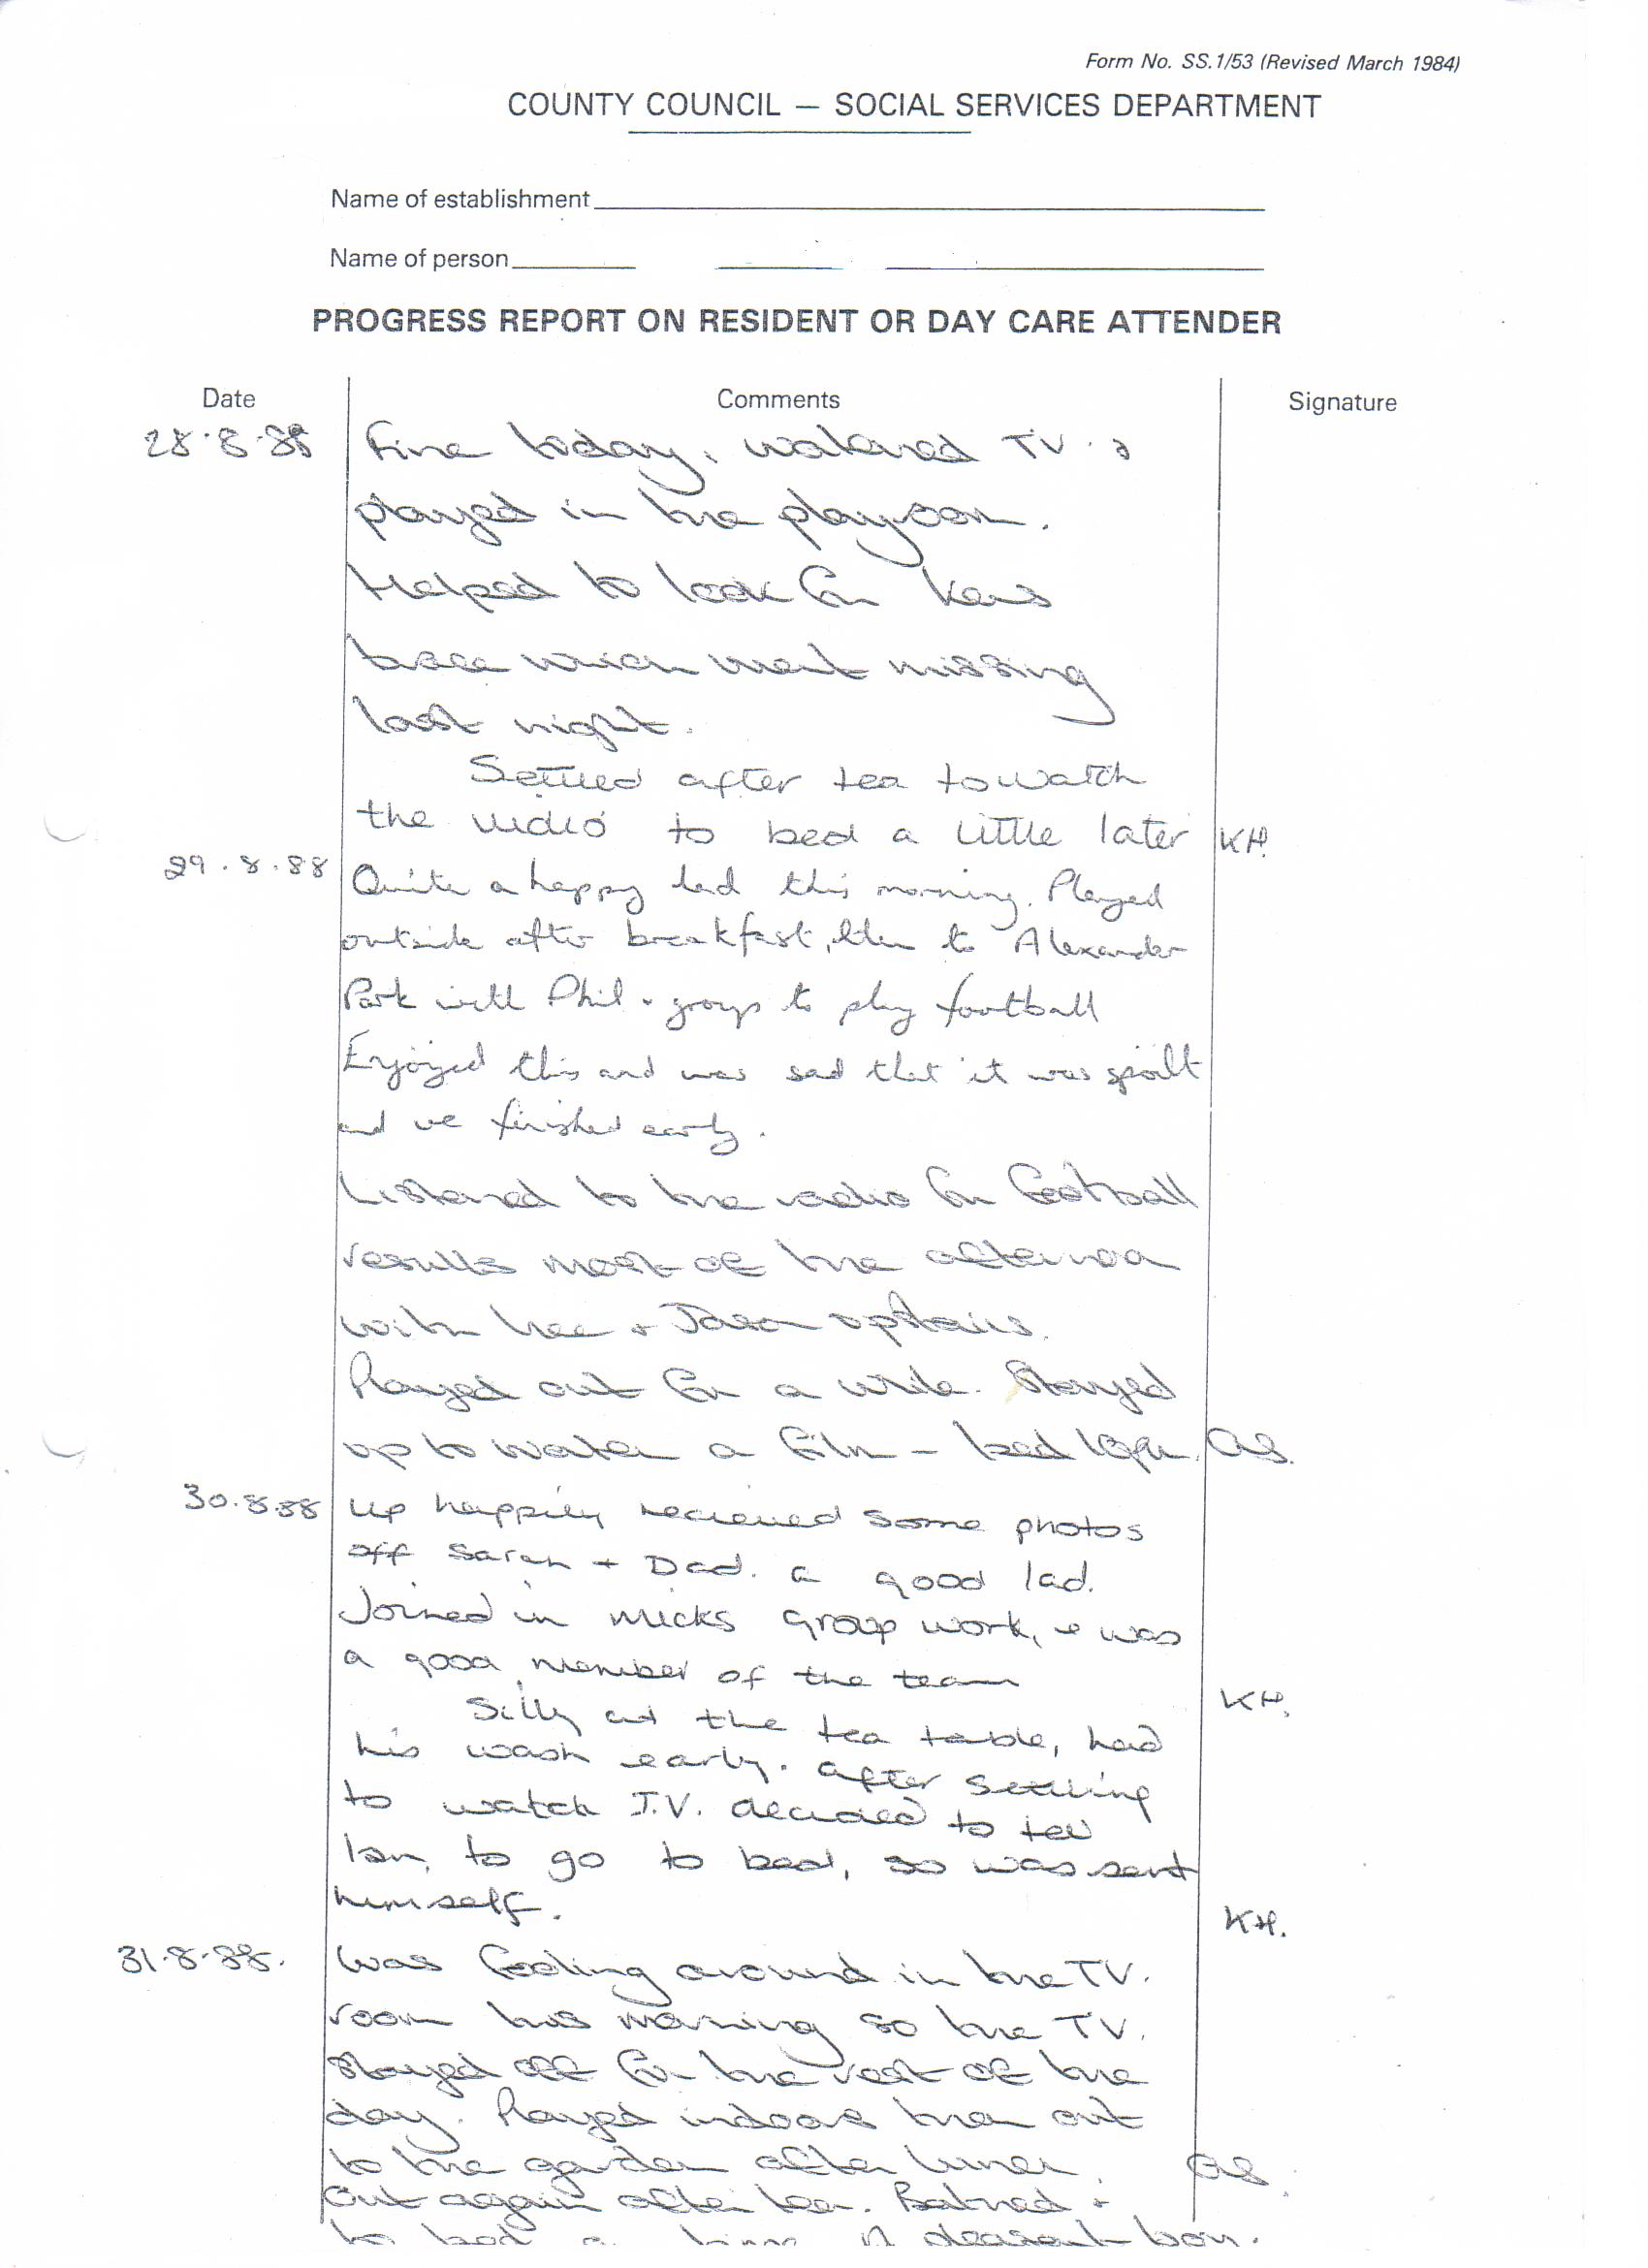 Form No. SS.1/53 (Revised March 1984)
COUNTY COUNCIL — SOCIAL SERVICES DEPARTMENT
Name of establishment
Name of person
PROGRESS REPORT ON RESIDENT OR DAY CARE ATTENDER
Date Comments Signature
28.8.88 Fine today, watched TV &
played in the playroom.
Helped to look for Kevs
which went missing
last night.
Settled after tea to watch
the video to bed a little later KH.
29.8.88 Quite a happy lad this morning. Played
outside after breakfast, then to Alexander
Park with Phil & group to play football
Enjoyed this and was sad that it was spoilt
and we finished early.
Listened to the radio for football
results most of the afternoon
with Lee + Jason upstairs.
Played out for a while. Stayed
up to watch a film – bed
30.8.88 up happily recieved some photos
off Sarah + Dad. a good lad.
Joined in Micks group work, & was
a good member of the team KH.
Silly at the tea table, had
his wash early. after settling
to watch T.V. decided to tell
Ian, to go to bed, so was sent
himself. KH.
31.8.88. Was fooling around in the TV.
room this morning so the TV.
stayed off for the rest of the
day. Played indoors then out
to the garden after lunch.
Out again after tea. Bathed &
to bed a pleasant boy.